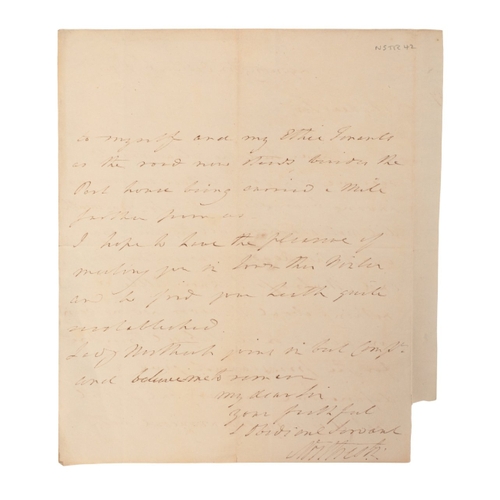 as myself and my other Tenants
as the road now stands, besides the
Post house being carried a Mile
further from us.
I hope to have the pleasure of
meeting you in town this Winter
and to find your health quite
reestablished.
Lady joins in best
and believe me to remain
my dear Sir
Your faithful
& Obedient Servant